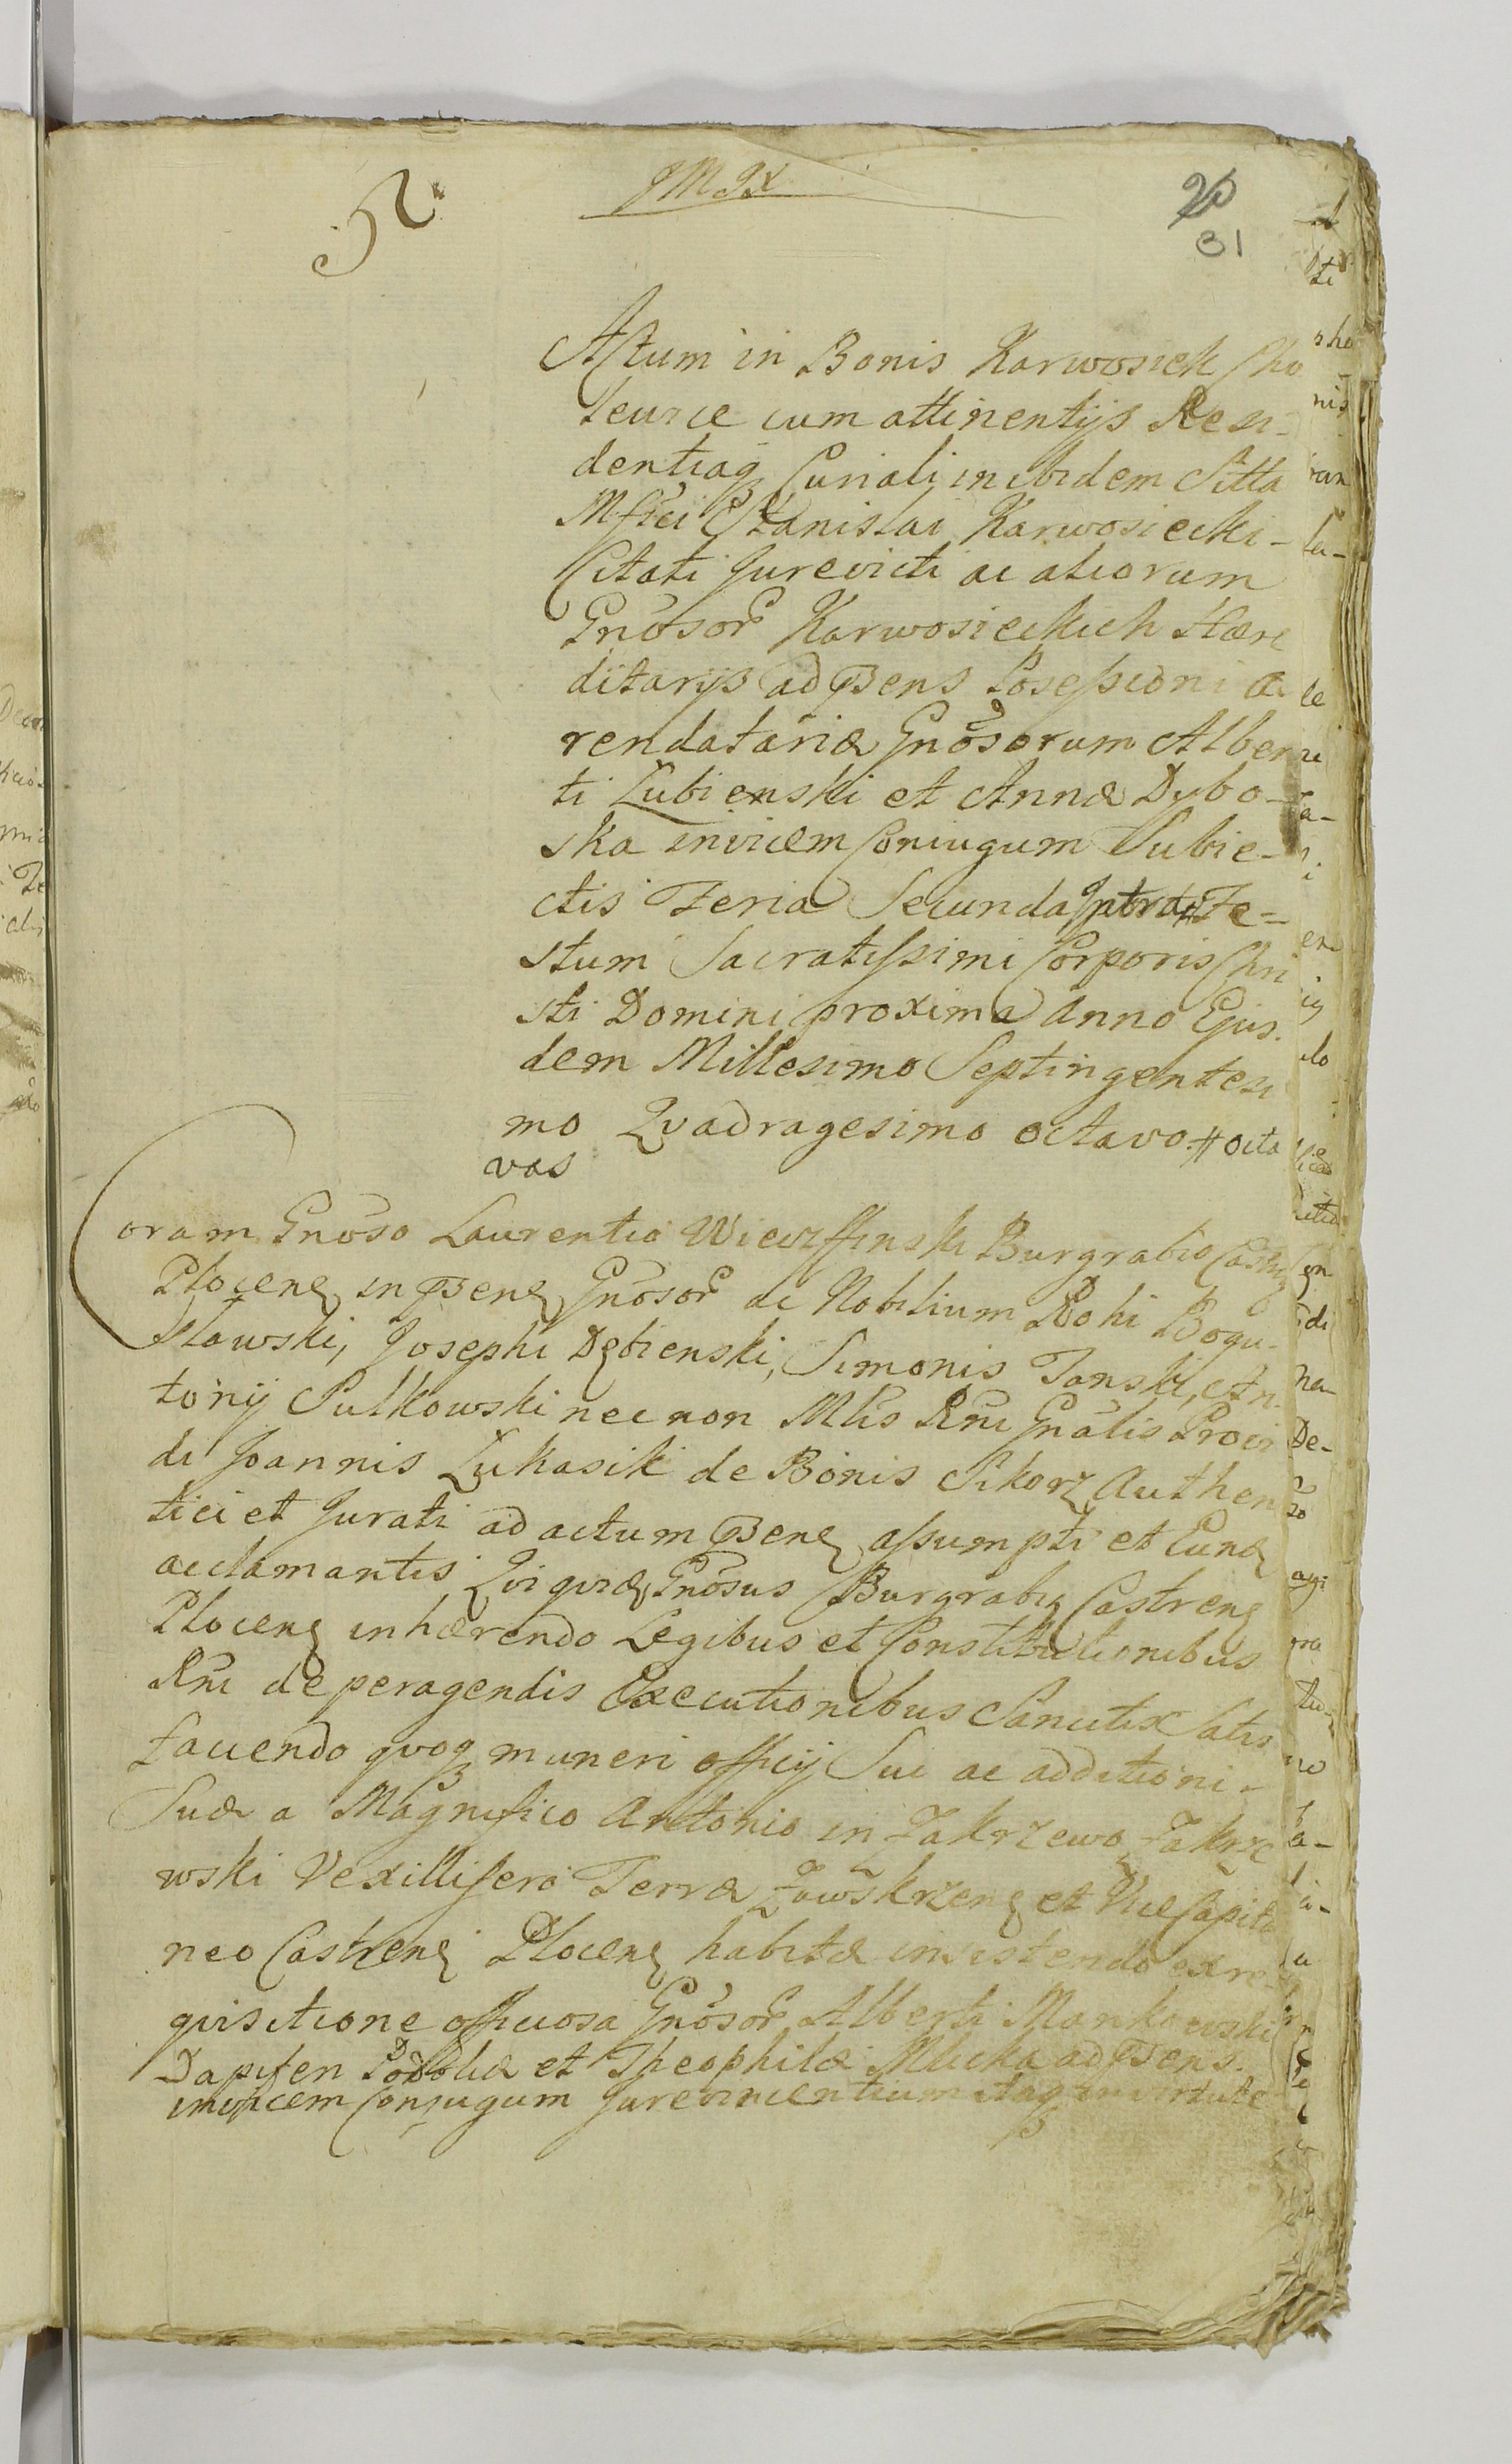 JMJX
20
31
Actum in Bonis Karwosiek Cho
leurce cum attinentijs Resi-
dentiaq Curiali inibidem Sitta
Mfici Stanislai Karwosiecki-
Citati Jurevicti ac aliorum
Gnosor Karwosieckich Hære
ditarijs ad præsens Posessioni A
rendatariæ Gnosorum Alber
ti Lubienski et Annæ Dybo-
ska invicem Coniugum Subie-
ctis Feria Secunda Fe-
stum Sacratissimi Corporis Chri
sti Domini proxima Anno Ejus.
dem Millesimo Septingentesi
mo Qvadragesimo octavo # octa
vas
Coram Gnoso Laurentio Burgrabio Castr
Plocen in præsen Gnosor ac Nobilium Rohi Bogu-
sławski, Josephi Dębienski, Simonis Janski, An-
tonij Sulkowski nec non Mlis Rni Gnalis Provi
di Joannis Lukasik de Bonis Sikorz Authen
tici et Jurati ad actum præsen assumpti et Eund
acclamantis Qviqvid Gnosus Burgrabius Castren
Plocen inhærendo Legibus et Constitutionibus
Rni de peragendis Executionibus Sancitis Satis
faciendo qvoq muneri officij Sui ac additioni
Suæ a Magnifico Antonio in Zakrzewo Zakrze
wski Vexillifero Terræ Zawskrzen et Vice Capita
neo Castren Plocen habitæ insistendo ex re-
qvisitione officiosa Gnosor Alberti Mankowski
Dapiferi Podoliæ et Theophilæ ad præsens
invicem Conjugum Jurevincentium itaq in virtute